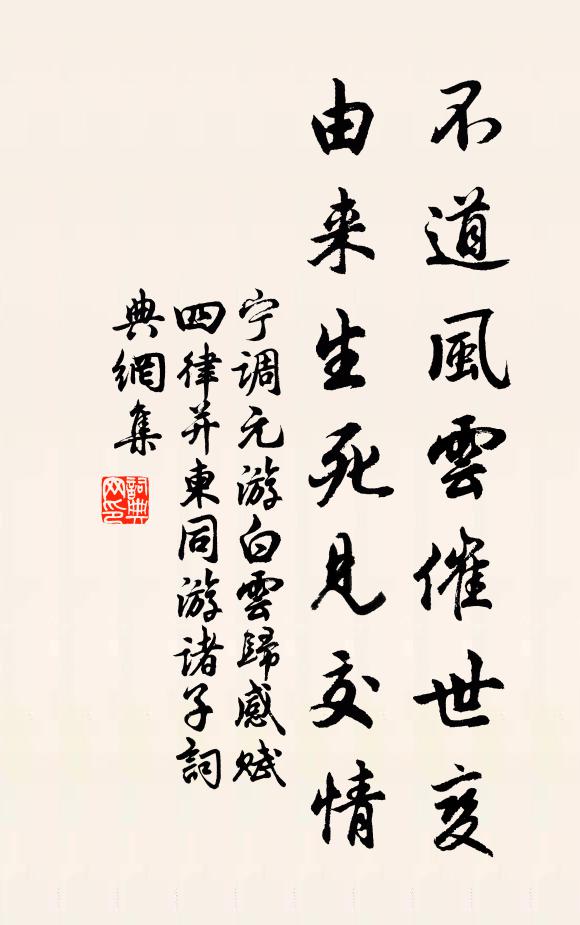 不道風雲催世变
由来生死見交情
宁調元游白雲歸感赋
四律并東同游诸子詞
典網集
詞典
网印